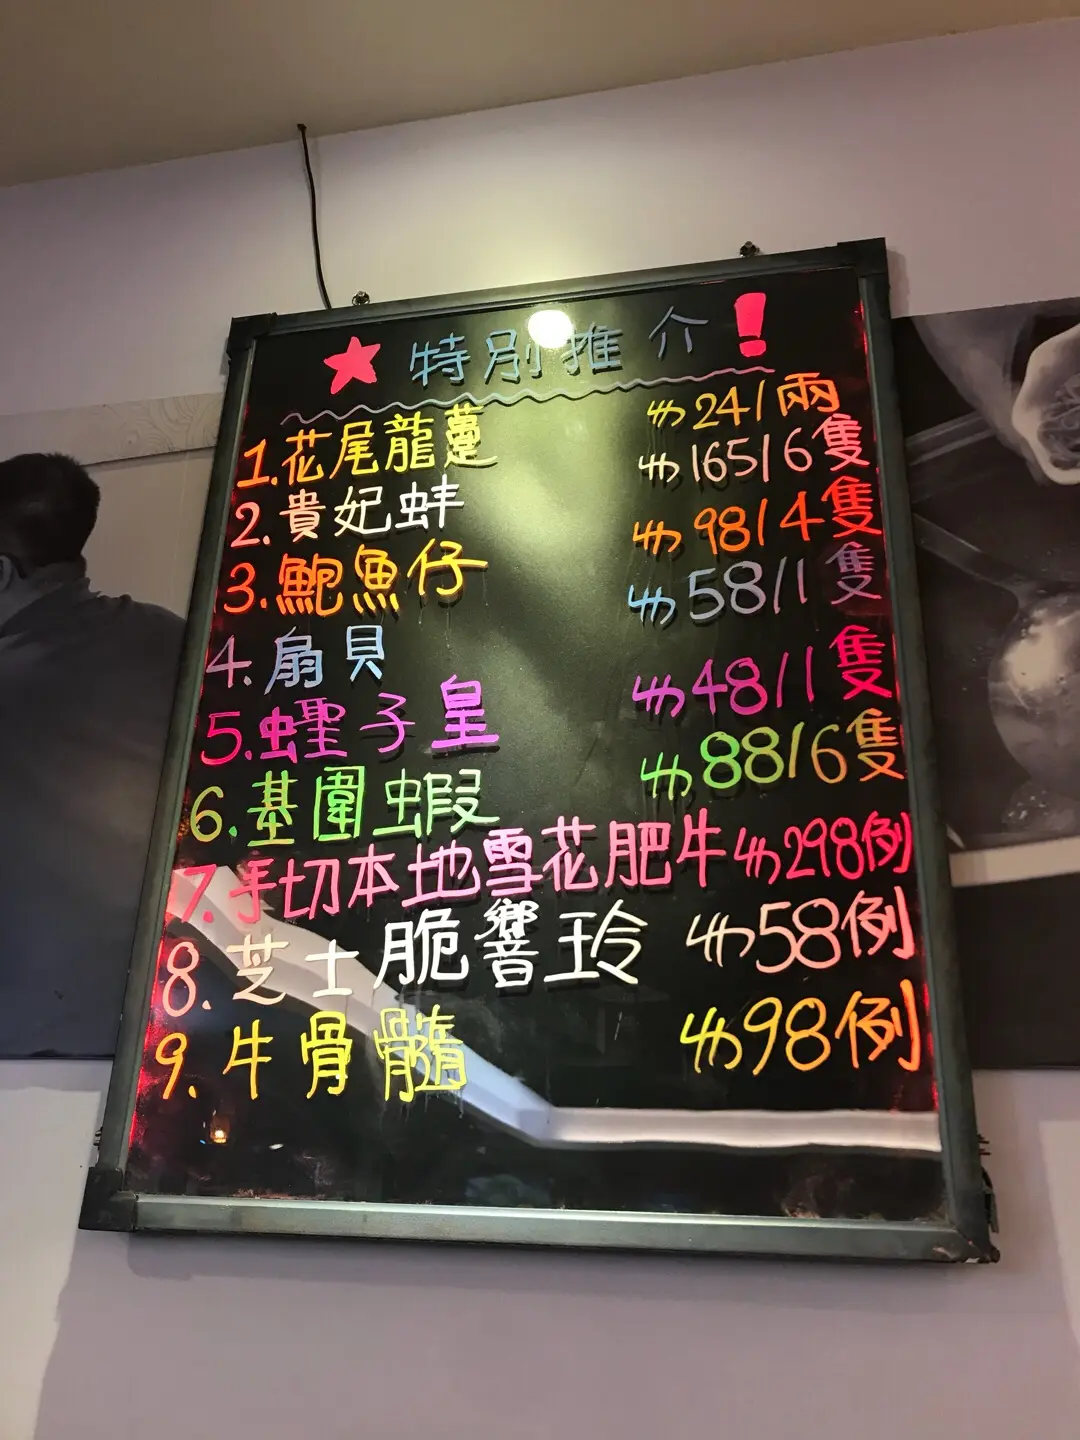 ★特別推介!
1.花尾龍躉 $24/兩
2.貴妃蚌 $165/6隻
3.鮑魚仔 $98/4隻
4.扇貝 $58/1隻
5.蟶子皇 $48/1隻
6.基圍蝦 $88/6隻
7.手切本地雪花肥牛 $298例
8.芝士脆響玲 $58例
9.牛骨髓 $98例